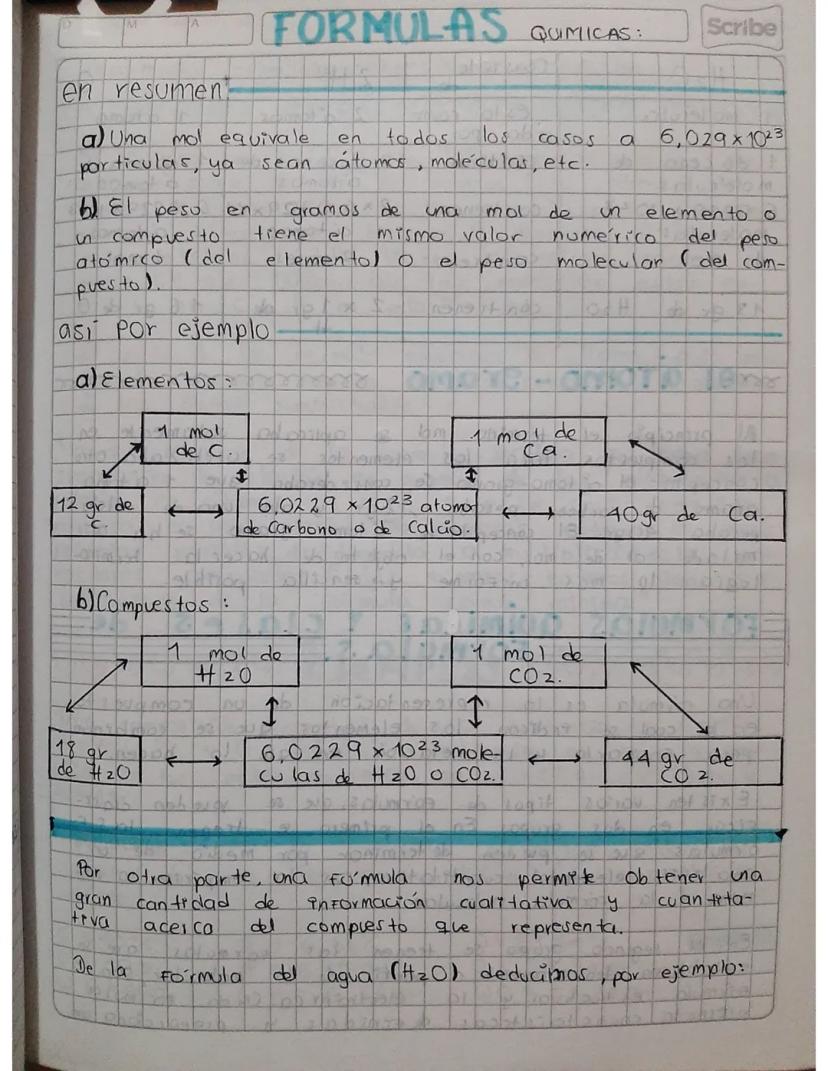 D M A FORMULAS QUIMICAS: Scribe
en resumen:
a) Una mol equivale en todos los casos a 6,029 x 10²³
particulas, ya sean átomos, moléculas, etc.
b) El peso en gramos de una mol de un elemento o
un compuesto tiene el mismo valor numérico del peso
atómico (del elemento) o el peso molecular (del com-
puesto).
así por ejemplo
a) Elementos:
1 mol
de C.
1 mol de
Ca.
12 gr de
C.
6,0229 x 10²³ atomo
de Carbono o de Calcio.
40gr de Ca.
b) Compuestos:
1 mol de
H2O
1 mol de
CO2.
18 gr
de H2O
6,0229 x 10²³ mole-
culas de H2O o CO2.
44 gr de
CO2.
Por otra parte, una fórmula nos permite obtener una
gran cantidad de información cualitativa y cuantita-
tiva acerca del compuesto que representa.
De la fórmula del agua (H2O) deducimos, por ejemplo: